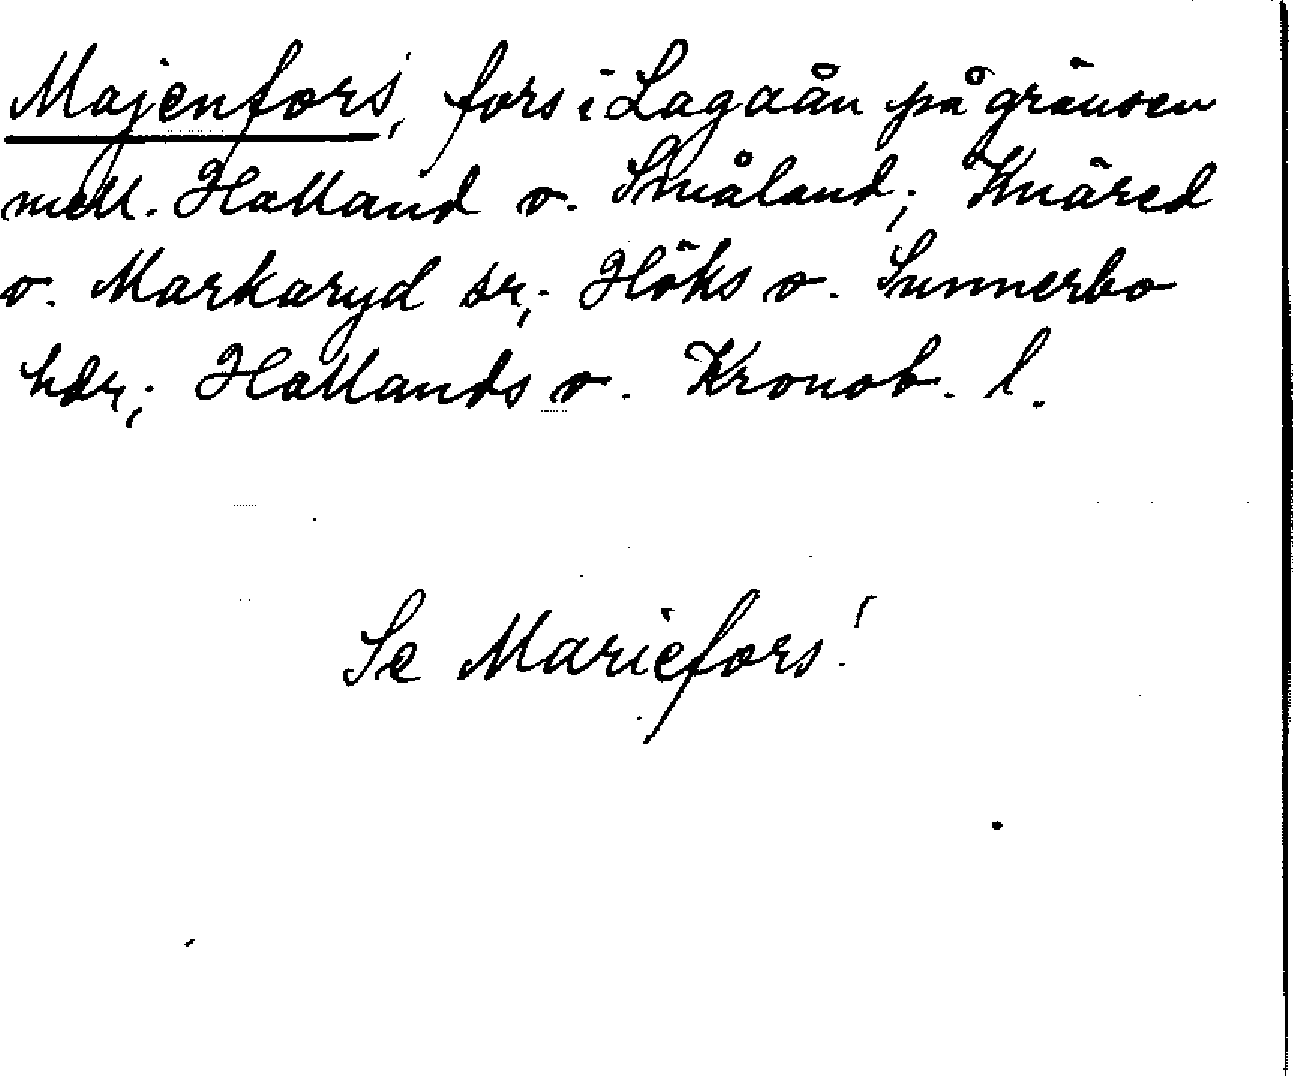 Majenfors, fors i Lagaån på gränsen
mell. Halland o. Småland; Knäred
o. Markaryd sr; Höks o. Sunnerbo
hdr; Hallands o. Kronob. l.
Se Mariefors!